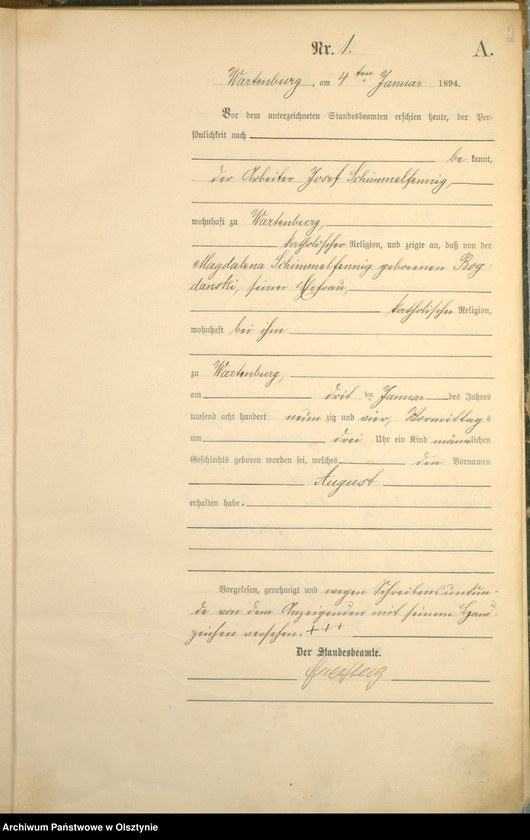 2
Nr. 1.
A.
Wartenburg, am 4 ten Januar 1894.
Vor dem unterzeichneten Standesbeamten erschien heute, der Per-
sönlichkeit nach
be kannt,
der Arbeiter Josef Schimmelfennig,
wohnhaft zu Wartenburg,
katholischer Religion, und zeigte an, daß von der
Magdalena Schimmelfennig geborenen Bog-
danski, seiner Ehefrau,
katholischer Religion,
wohnhaft bei ihm
zu Wartenburg,
am dritten Januar des Jahres
tausend acht hundert neun zig und vier, Vormittags
um drei Uhr ein Kind männlichen
Geschlechts geboren worden sei, welches den Vornamen
August
erhalten habe.
Vorgelesen, genehmigt und wegen Schreibensunkun-
de von dem Anzeigenden mit seinem Hand-
zeichen versehen. +++
Der Standesbeamte.
Archiwum Państwowe w Olsztynie